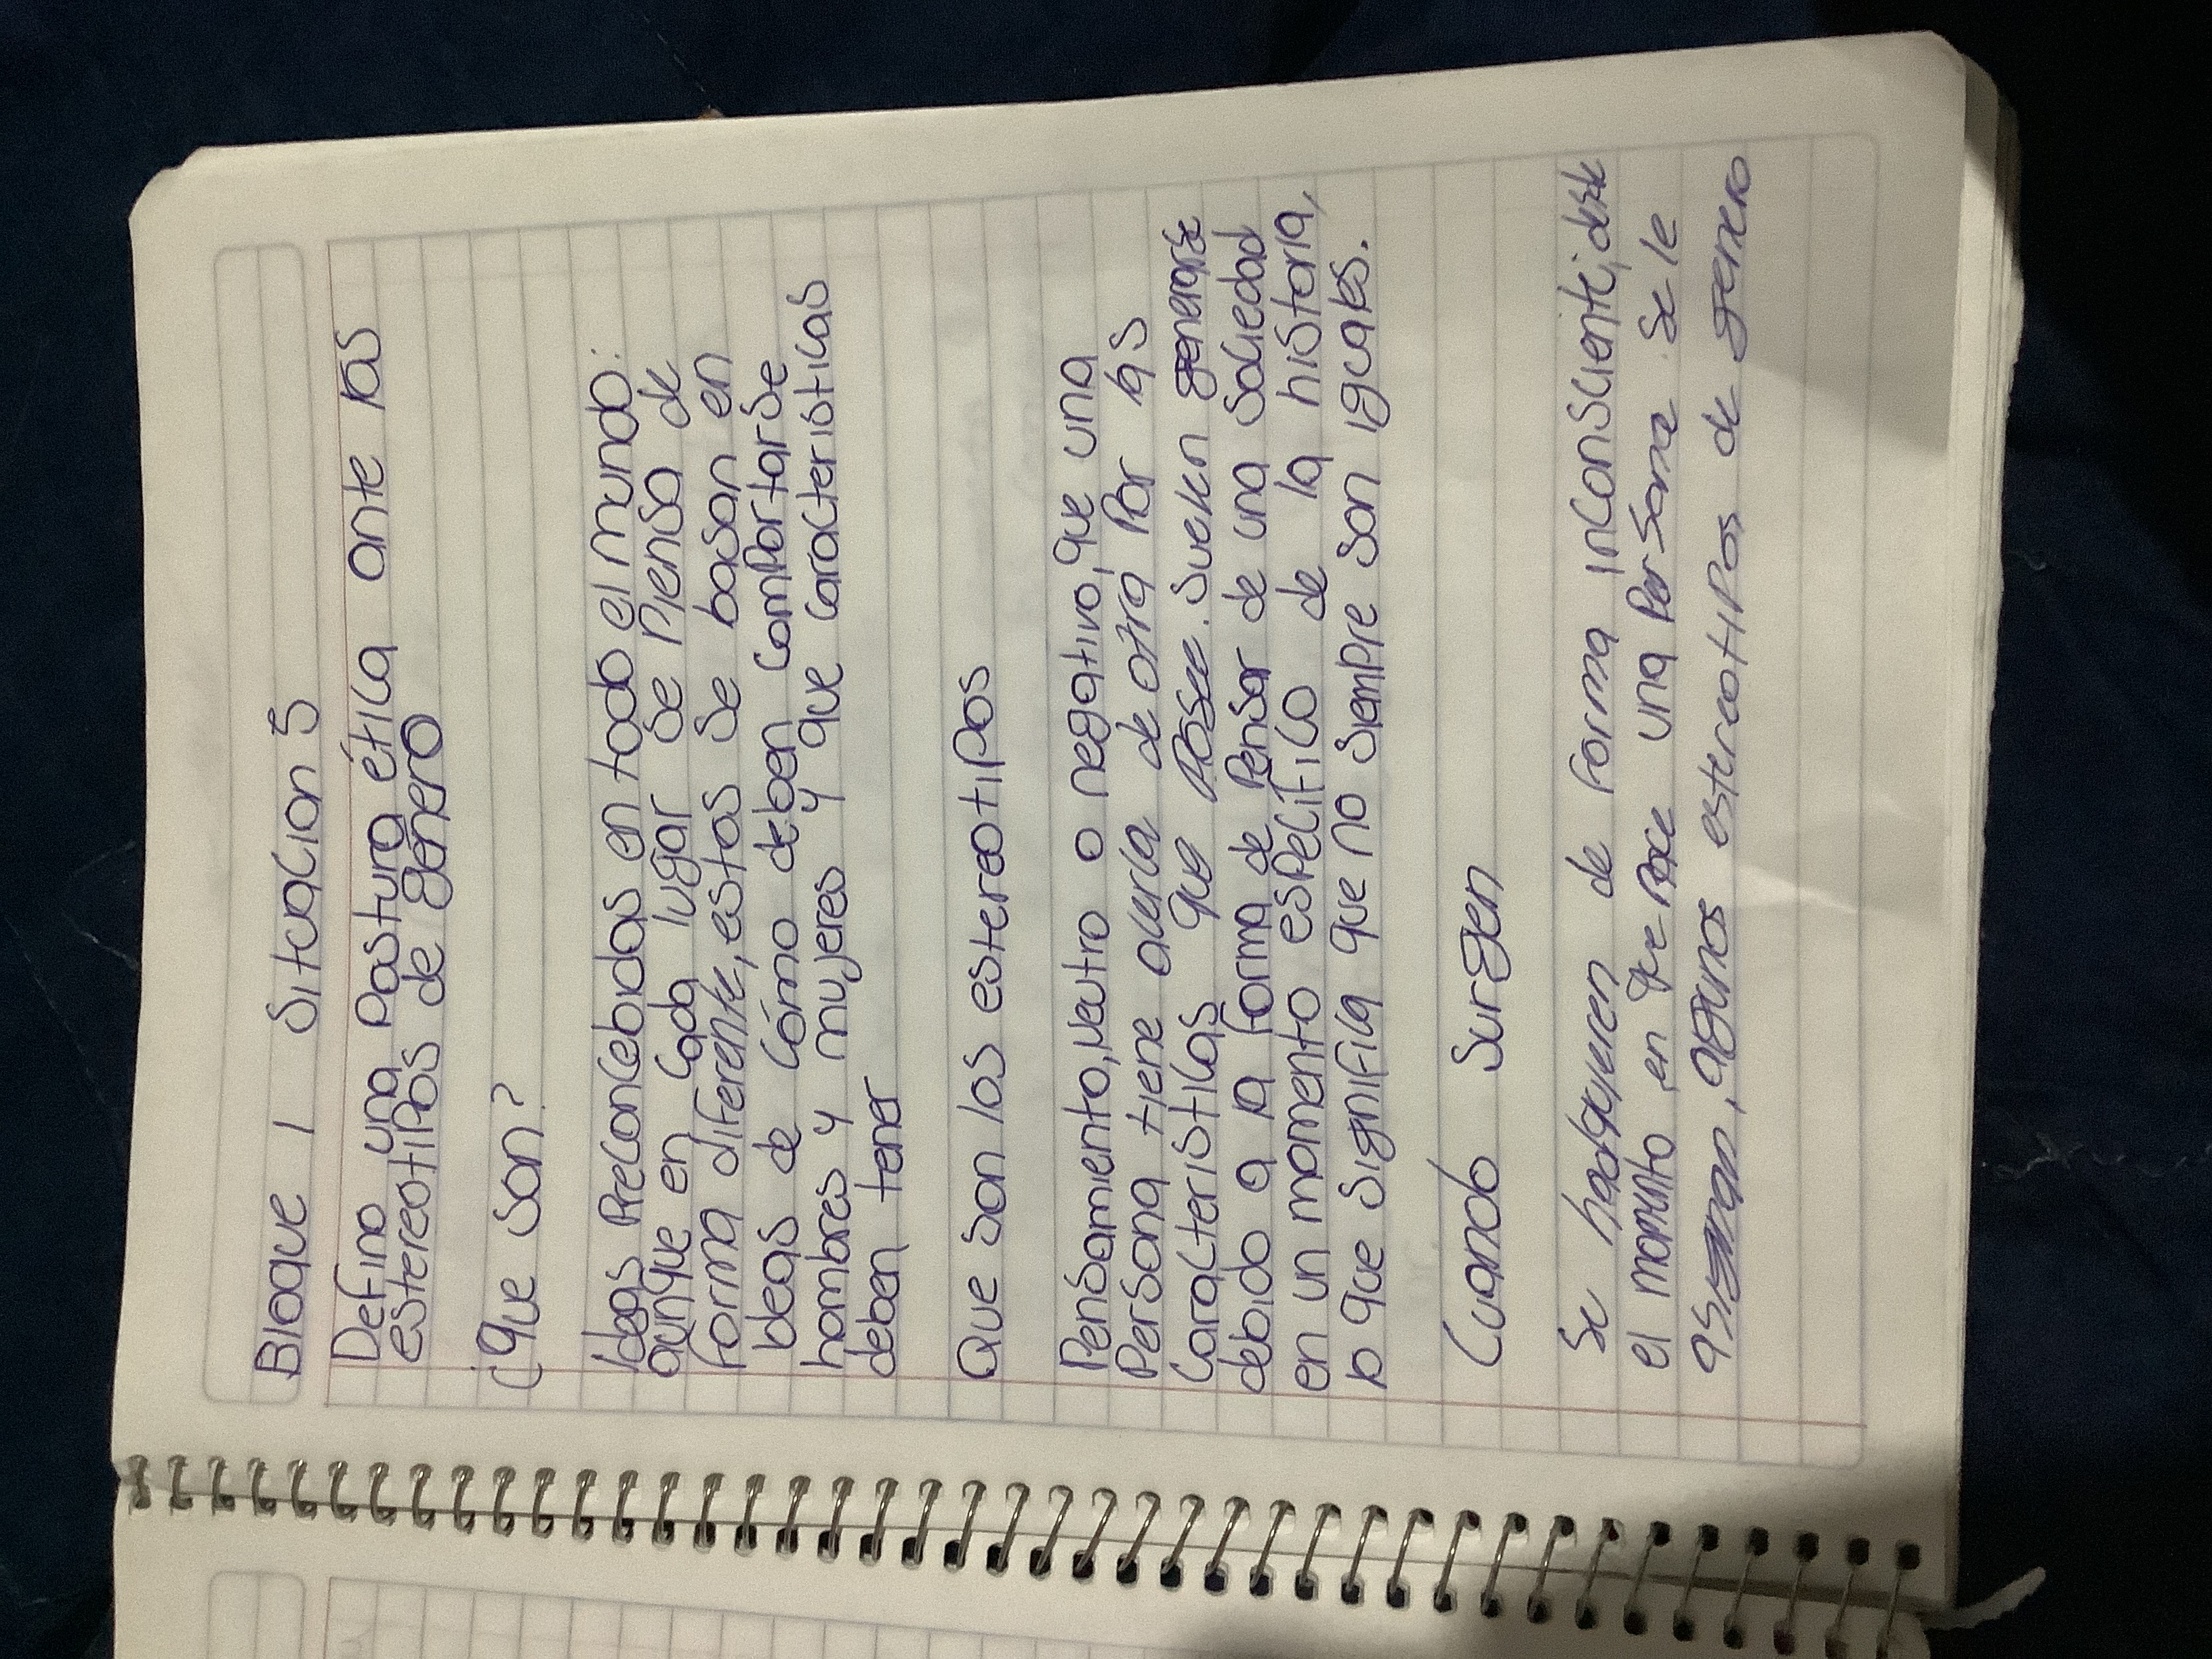 Bloque 1 Situacion 5
Defino una Postura ética ante los
estereotipos de genero
¿Que son?
Ideas Preconcebidas en todo el mundo:
aunque en cada lugar se Piensa de
forma diferente, estas se basan en
Ideas de cómo deben comportarse
hombres y mujeres y que caracteristicas
deben tener
Que son los estereotipos
Pensamiento, Neutro o negativo, que una
Persona tiene acerca de otra Por las
Caracteristicas que Posee. Suelen generarse
debido a la forma de Pensar de una sociedad
en un momento especifico de la historia,
lo que significa que no siempre son iguales.
Cuando Surgen
Se de forma inconsciente, desde
el momento en que nace una Persona se le
asignan, algunos estereotipos de genero